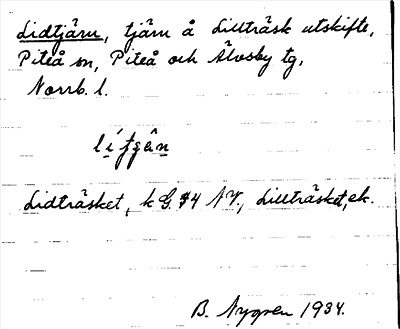 Lidtjärn, tjärn å Lillträsk utskifte,
Piteå sn, Piteå och Älvsby tg,
Norrb. l.
Lidträsket, k G. 34 NV., Lillträsket, ek.
B. Nygren 1934.